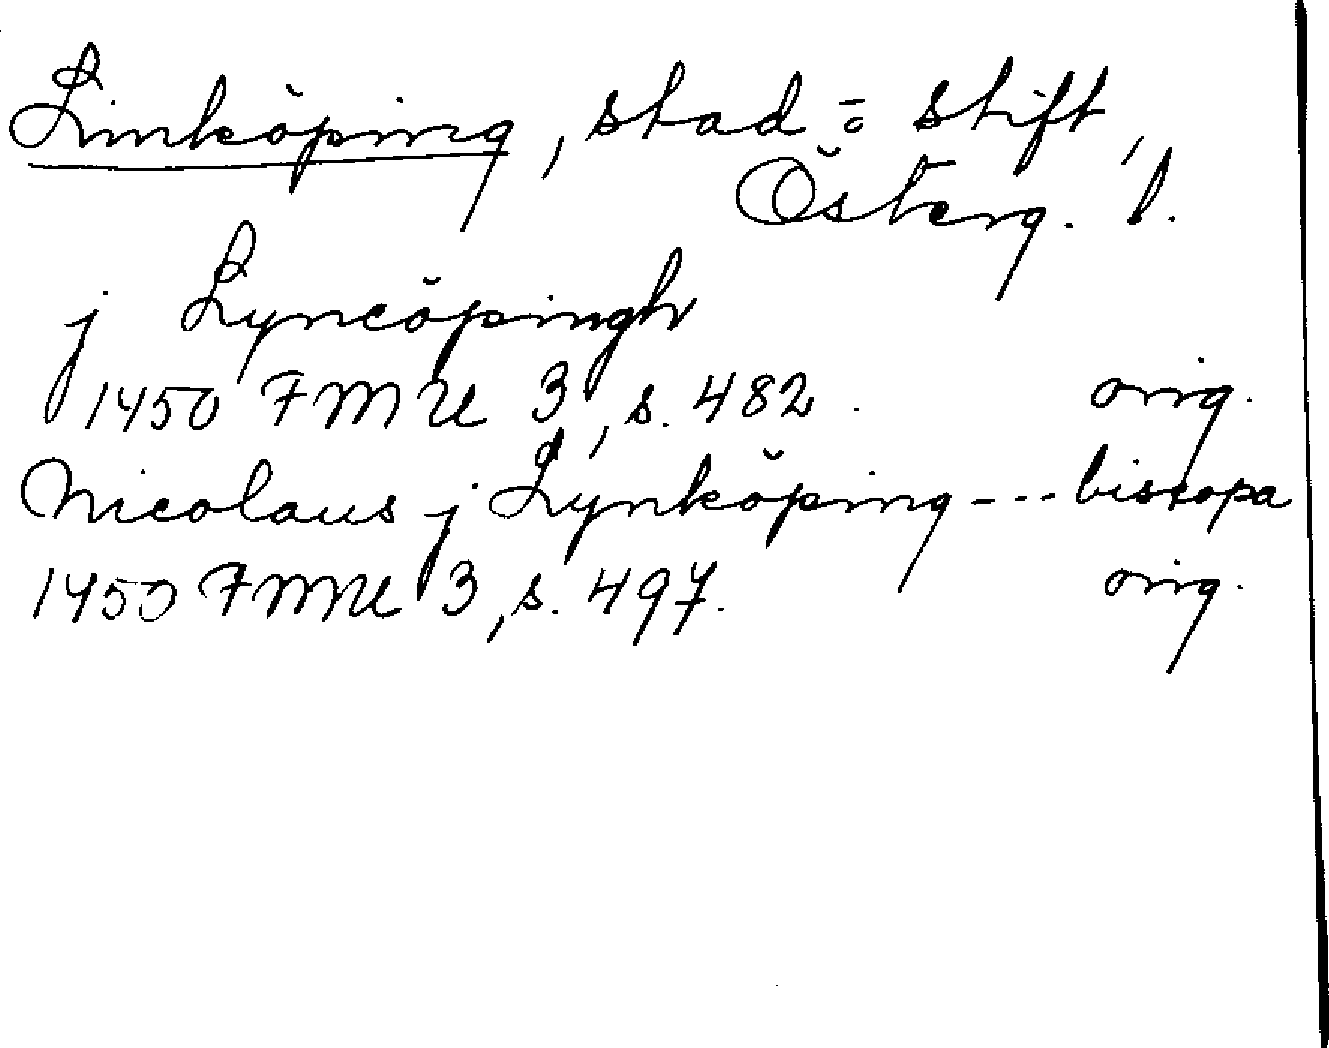 Linköping, stad o stift,
Österg. l.
j Lyncöpingh
1450 FMU 3, s. 482. orig.
Nicolaus j Lynköping --- biscopa
1450 FMU 3, s. 497. orig.